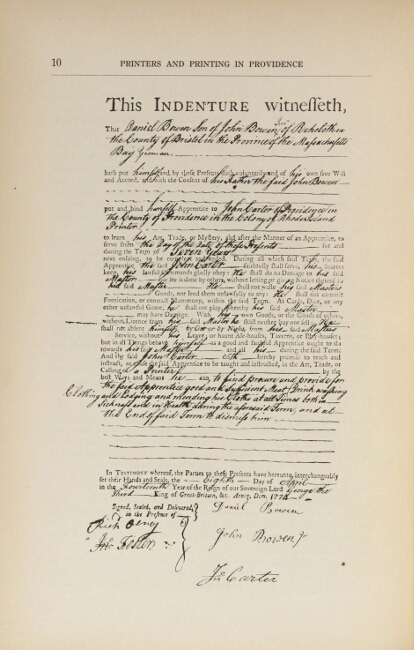 10 PRINTERS AND PRINTING IN PROVIDENCE
This INDENTURE witnesseth,
That Daniel Bowen Son of John Bowen Jr of Rehoboth in
the County of Bristol in the Province of the Massachusetts
Bay Yeoman
hath put himself and by these Presents doth voluntarily and of his own free Will
and Accord, and with the Consent of his Father the said John Bowen
put and bind himself Apprentice to John Carter of Providence in
the County of Providence in the Colony of Rhode Island
Printer
to learn his Art, Trade, or Mystery, and after the Manner of an Apprentice, to
serve from the Day of the Date of these Presents for and
during the Term of Seven Years
next ensuing, to be compleat and ended. During all which said Term, the said
Apprentice the said John Carter faithfully shall serve, his Secrets
keep, his lawful Commands gladly obey: He shall do no Damage to his said
Master nor see it done by others, without letting or giving Notice thereof to
his said Master He shall not waste his said Master's
Goods, nor lend them unlawfully to any. He shall not commit
Fornication, or contract Matrimony, within the said Term. At Cards, Dice, or any
other unlawful Game, he shall not play, whereby his said Master
may have Damage. With his own Goods, or the Goods of others,
without Licence from his said Master he shall neither buy nor sell. He
shall not absent himself by Day or by Night, from his said Master's
Service, without his Leave; or haunt Ale-houses, Taverns, or Play-houses;
but in all Things behave himself as a good and faithful Apprentice ought to do
towards his said Master and all his during the said Term.
And the said John Carter doth hereby promise to teach and
instruct, or cause the said Apprentice to be taught and instructed, in the Art, Trade, or
Calling of a Printer by the
best Ways and Means he can, to find procure and provide for
the said Apprentice good and sufficient Meat Drink washing
Clothing and lodging and mending his Cloths at all Times both in
Sickness and in Health during the aforesaid Term, and at
the End of said Term to dismiss him
In TESTIMONY whereof, the Parties to these Presents have hereunto interchangeably
set their Hands and Seals, the Eighth Day of April
in the fourteenth Year of the Reign of our Sovereign Lord George the
Third King of Great-Britain, &c. Anno, Dom. 1774
Signed, Sealed, and Delivered,
in the Presence of
Daniel Bowen
John Bowen Jr
Jno Carter